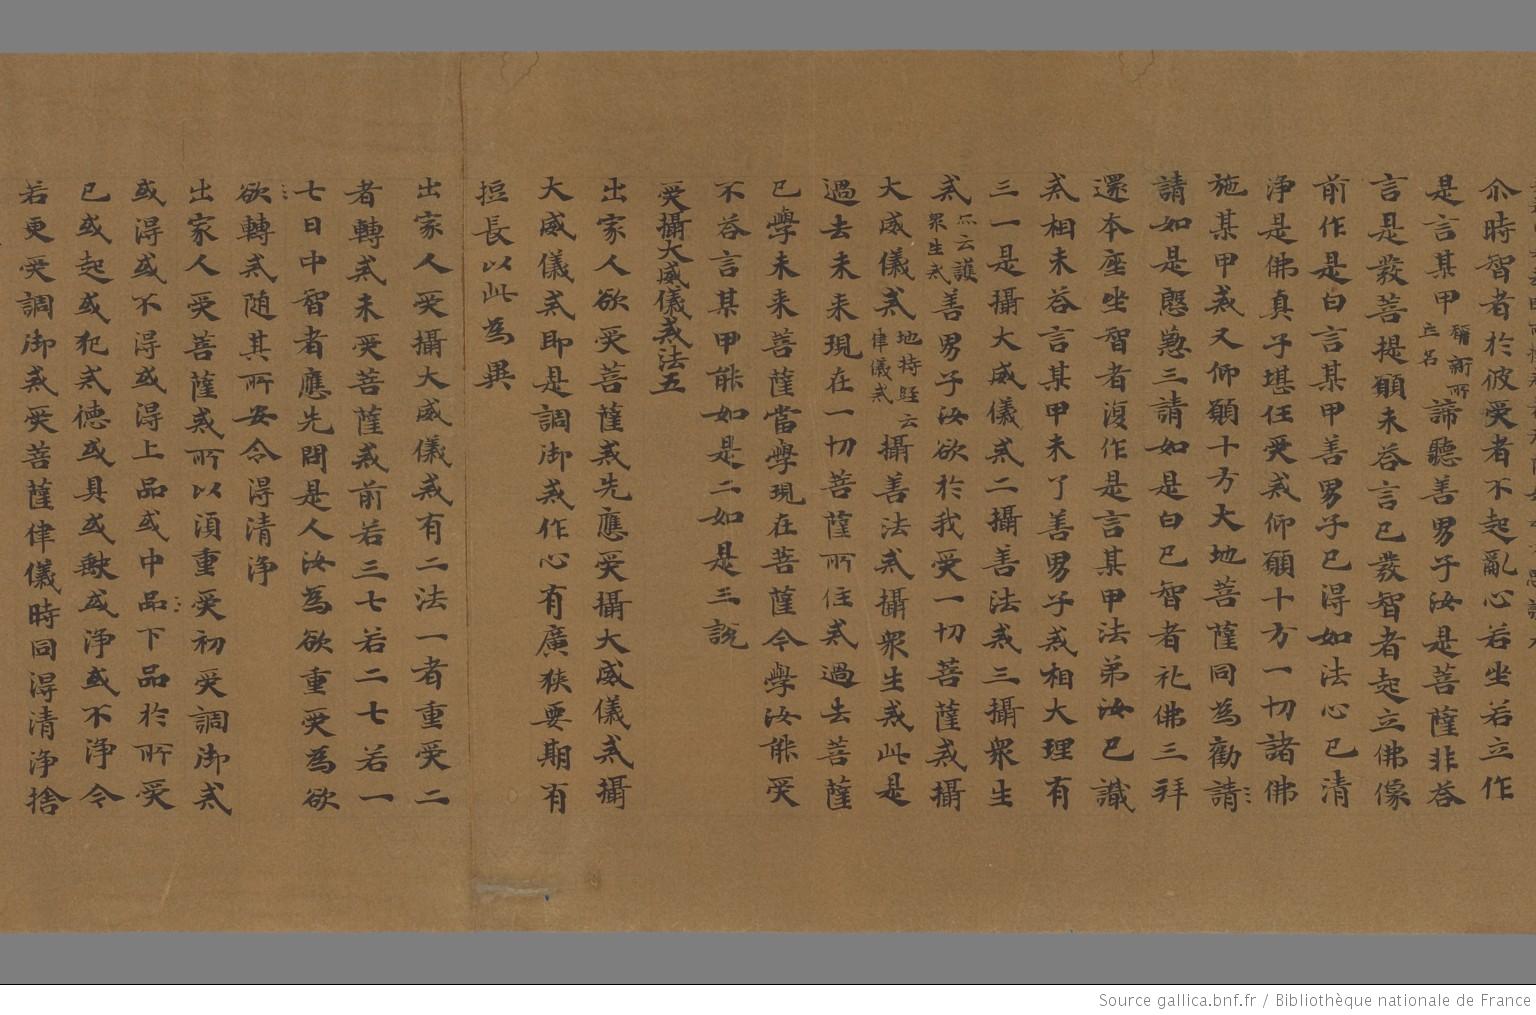 尒時智者於彼受者不起亂心若坐若立作
是言某甲稱新所立名諦聽善男子汝是菩薩非荅
言是發菩提願未荅言已發智者起立佛像
前作是白言某甲善男子已得如法心已清
淨是佛真子堪任受戒仰願十方一切諸佛
施某甲戒又仰願十方大地菩薩同為勸請
請如是慇懃三請如是白已智者礼佛三拜
還本座坐智者復作是言某甲法弟汝已識
戒相未荅言某甲未了善男子戒相大理有
三一是攝大威儀戒二攝善法戒三攝衆生
戒云護衆生戒善男子汝欲於我受一切菩薩戒攝
大威儀戒地持経云律儀戒攝善法戒攝衆生戒此是
過去未来現在一切菩薩所住戒過去菩薩
已學未来菩薩當學現在菩薩今學汝能受
不荅言某甲能如是二如是三說
受攝大威儀戒法五
出家人欲受菩薩戒先應受攝大威儀戒攝
大威儀戒即是調御戒作心有廣狹要期有
短長以此為異
出家人受攝大威儀戒有二法一者重受二
者轉戒未受菩薩戒前若三七若二七若一
七日中智者應先問是人汝為欲重受為欲
欲轉戒随其所安令得清淨
出家人受菩薩戒所以須重受初受調御戒
或得或不得或得上品或中品下品於所受
已或起或犯戒徳或具或缺或淨或不淨令
若更受調御戒受菩薩律儀時同得清淨捨
Source gallica.bnf.fr / Bibliothèque nationale de France